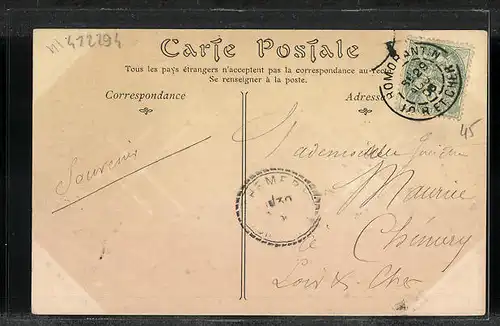 M 412294
Carte Postale
Tous les pays étrangers n'acceptent pas la correspondance au recto
Se renseigner à la poste.
Correspondance
Adresse
ROMORANTIN
29
LOIR-ET-CHER
45
Mademoiselle
Souvenir
Maurice
Chémery
Loir & Cher